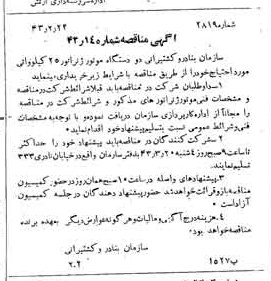 شماره ۲۸۱۹ ۴۳٫۲٫۲۴
آگهی مناقصه شماره ۱۴ر۴۳
سازمان بنادر و کشتیرانی دو دستگاه موتور ژنراتور ۲۵ کیلوواتی
مورد احتیاج خود را از طریق مناقصه با شرایط زیر خریداری مینماید
۱ـ داوطلبان شرکت در مناقصه باید قبلا شرائط شرکت در مناقصه
و مشخصات فنی موتور ژنراتورهای مذکور و شرائط شرکت در مناقصه
را مجاناً از اداره کارپردازی سازمان دریافت نموده و با توجه به مشخصات
فنی و شرائط عمومی نسبت بتسلیم پیشنهاد خود اقدام نمایند
۲ـ شرکت کنندگان در مناقصه باید پیشنهاد خود را حداکثر
تا ساعت ۹ صبح روز ۴ شنبه ۴۳٫۳٫۲۰ بدفتر سازمان واقع در خیابان نادری ۳۳۳
تسلیم نمایند.
۳ـ پیشنهادهای واصله در ساعت ۱۰ صبح همان روز در حضور کمیسیون
مناقصه باز و قرائت خواهد شد حضور پیشنهاد دهندگان در جلسه کمیسیون
آزاد است
۴ـ هزینه درج آگهی و مالیات و هر گونه عوارض دیگر بعهده برنده
مناقصه خواهد بود
سازمان بنادر و کشتیرانی
پ ۱۵۲۷ ۲ـ۲